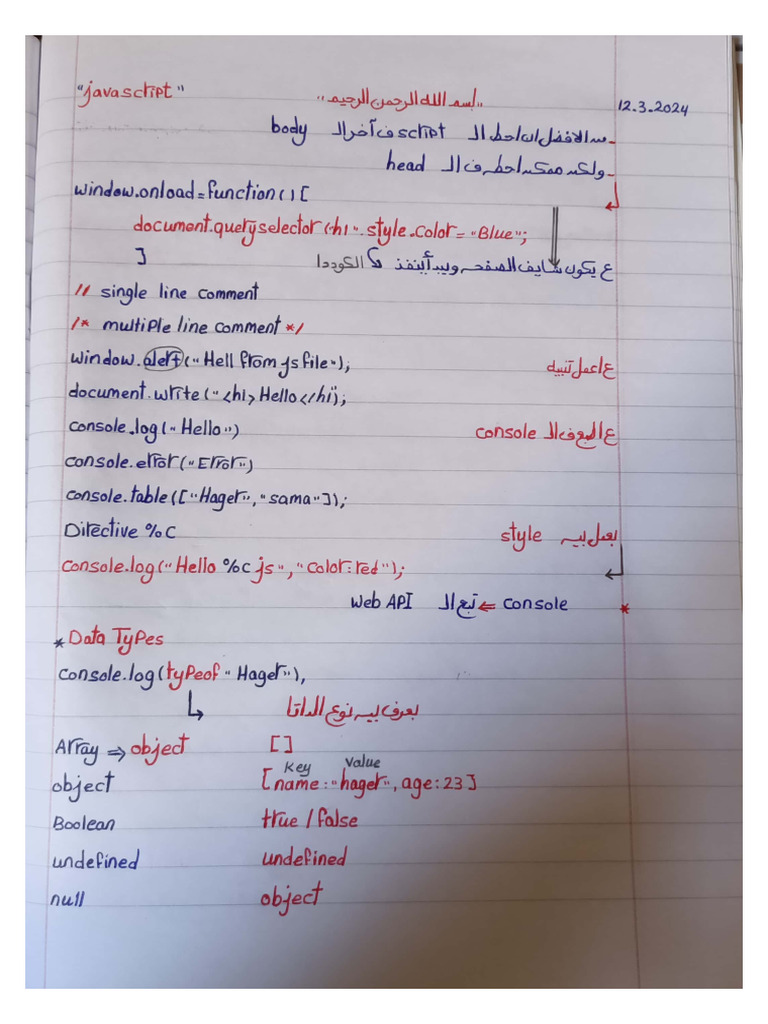 "javascript" "بسم الله الرحمن الرحيم" 12.3.2024
- من الافضل ان احط ال script ف آخر ال body
- ولكن ممكن احطه ف ال head
window.onload=function()[
document.queryselector(h1".style.color="Blue";
]
ع يكون شايف الصفحه ويبدأ ينفذ الكود دا
// single line comment
/* multiple line comment */
window.alert("Hell from js file"); ع اعمل تنبيه
document.write("<h1>Hello</h1");
console.log("Hello") ع اطبع ف ال console
console.error("Error")
console.table(["Hager","sama"]);
Directive %C بعمل بيه style
console.log("Hello %c js","color:red");
* console ⇐ تبع ال Web API
* Data Types
console.log(typeof "Hager"),
بعرف بيه نوع الداتا
Array ⇒ object []
Key Value
object [name:"hager",age:23]
Boolean true/false
undefined undefined
null object